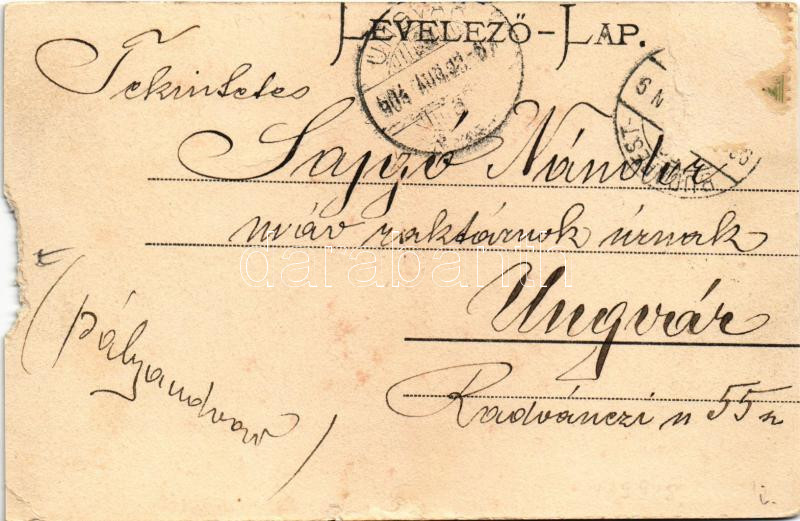 LEVELEZŐ-LAP.
UNGVÁR
904 AUG.
6 N
Tekintetes
Sajgó Nándor
máv raktárnok úrnak
Ungvár
Radvánczi u 55 sz
(pályaudvar)
darabanth
i.